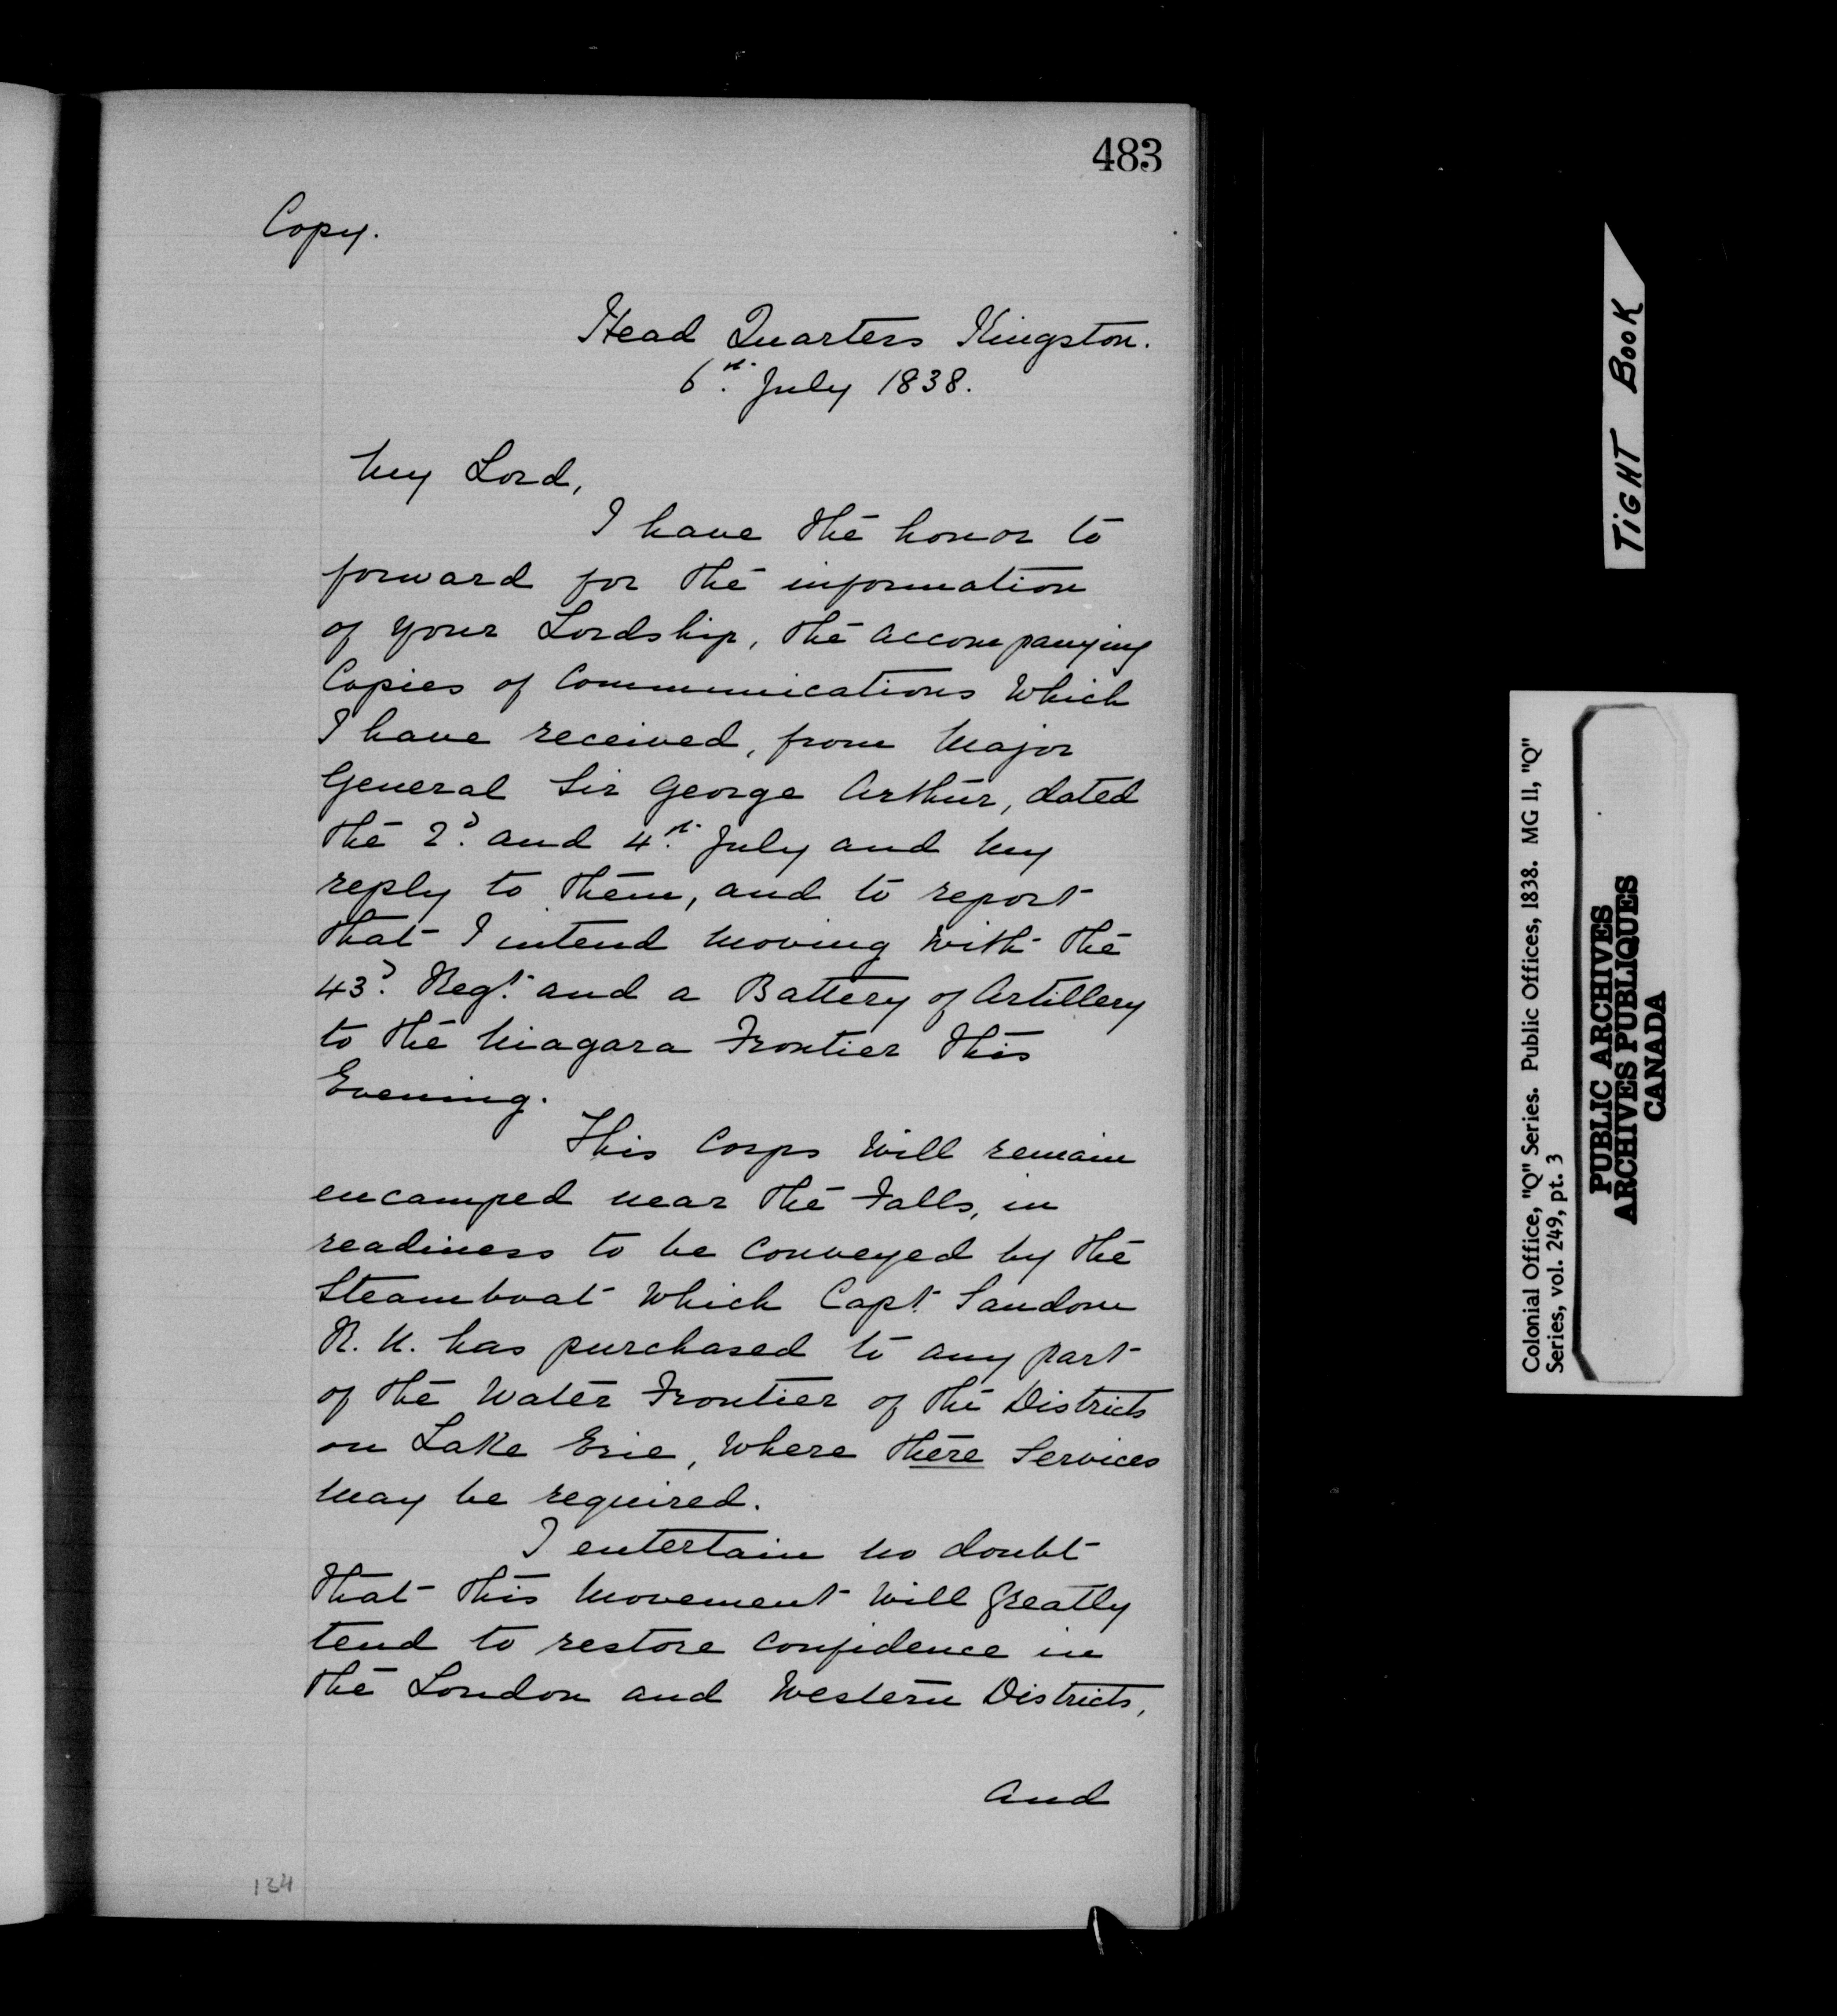 483
Copy.
Head Quarters Kingston.
6th. July 1838.
My Lord,
I have the honor to
forward for the information
of your Lordship, the accompanying
Copies of Communications Which
I have received, from Major
General Sir George Arthur, dated
the 2d. and 4th. July and My
reply to them, and to report
that I intend Moving With the
43d. Regt. and a Battery of Artillery
to the Niagara Frontier this
Evening.
This Corps Will remain
encamped near the Falls, in
readiness to be Conveyed by the
Steamboat Which Capt. Sandom
R. N. has purchased to any part
of the Water Frontier of the Districts
on Lake Erie, Where there Services
May be required.
I entertain no doubt
that this Movement Will Greatly
tend to restore Confidence in
the London and Western Districts,
and
134
TIGHT BOOK
Colonial Office, "Q" Series. Public Offices, 1838. MG 11, "Q"
Series, vol. 249, pt. 3
PUBLIC ARCHIVES
ARCHIVES PUBLIQUES
CANADA